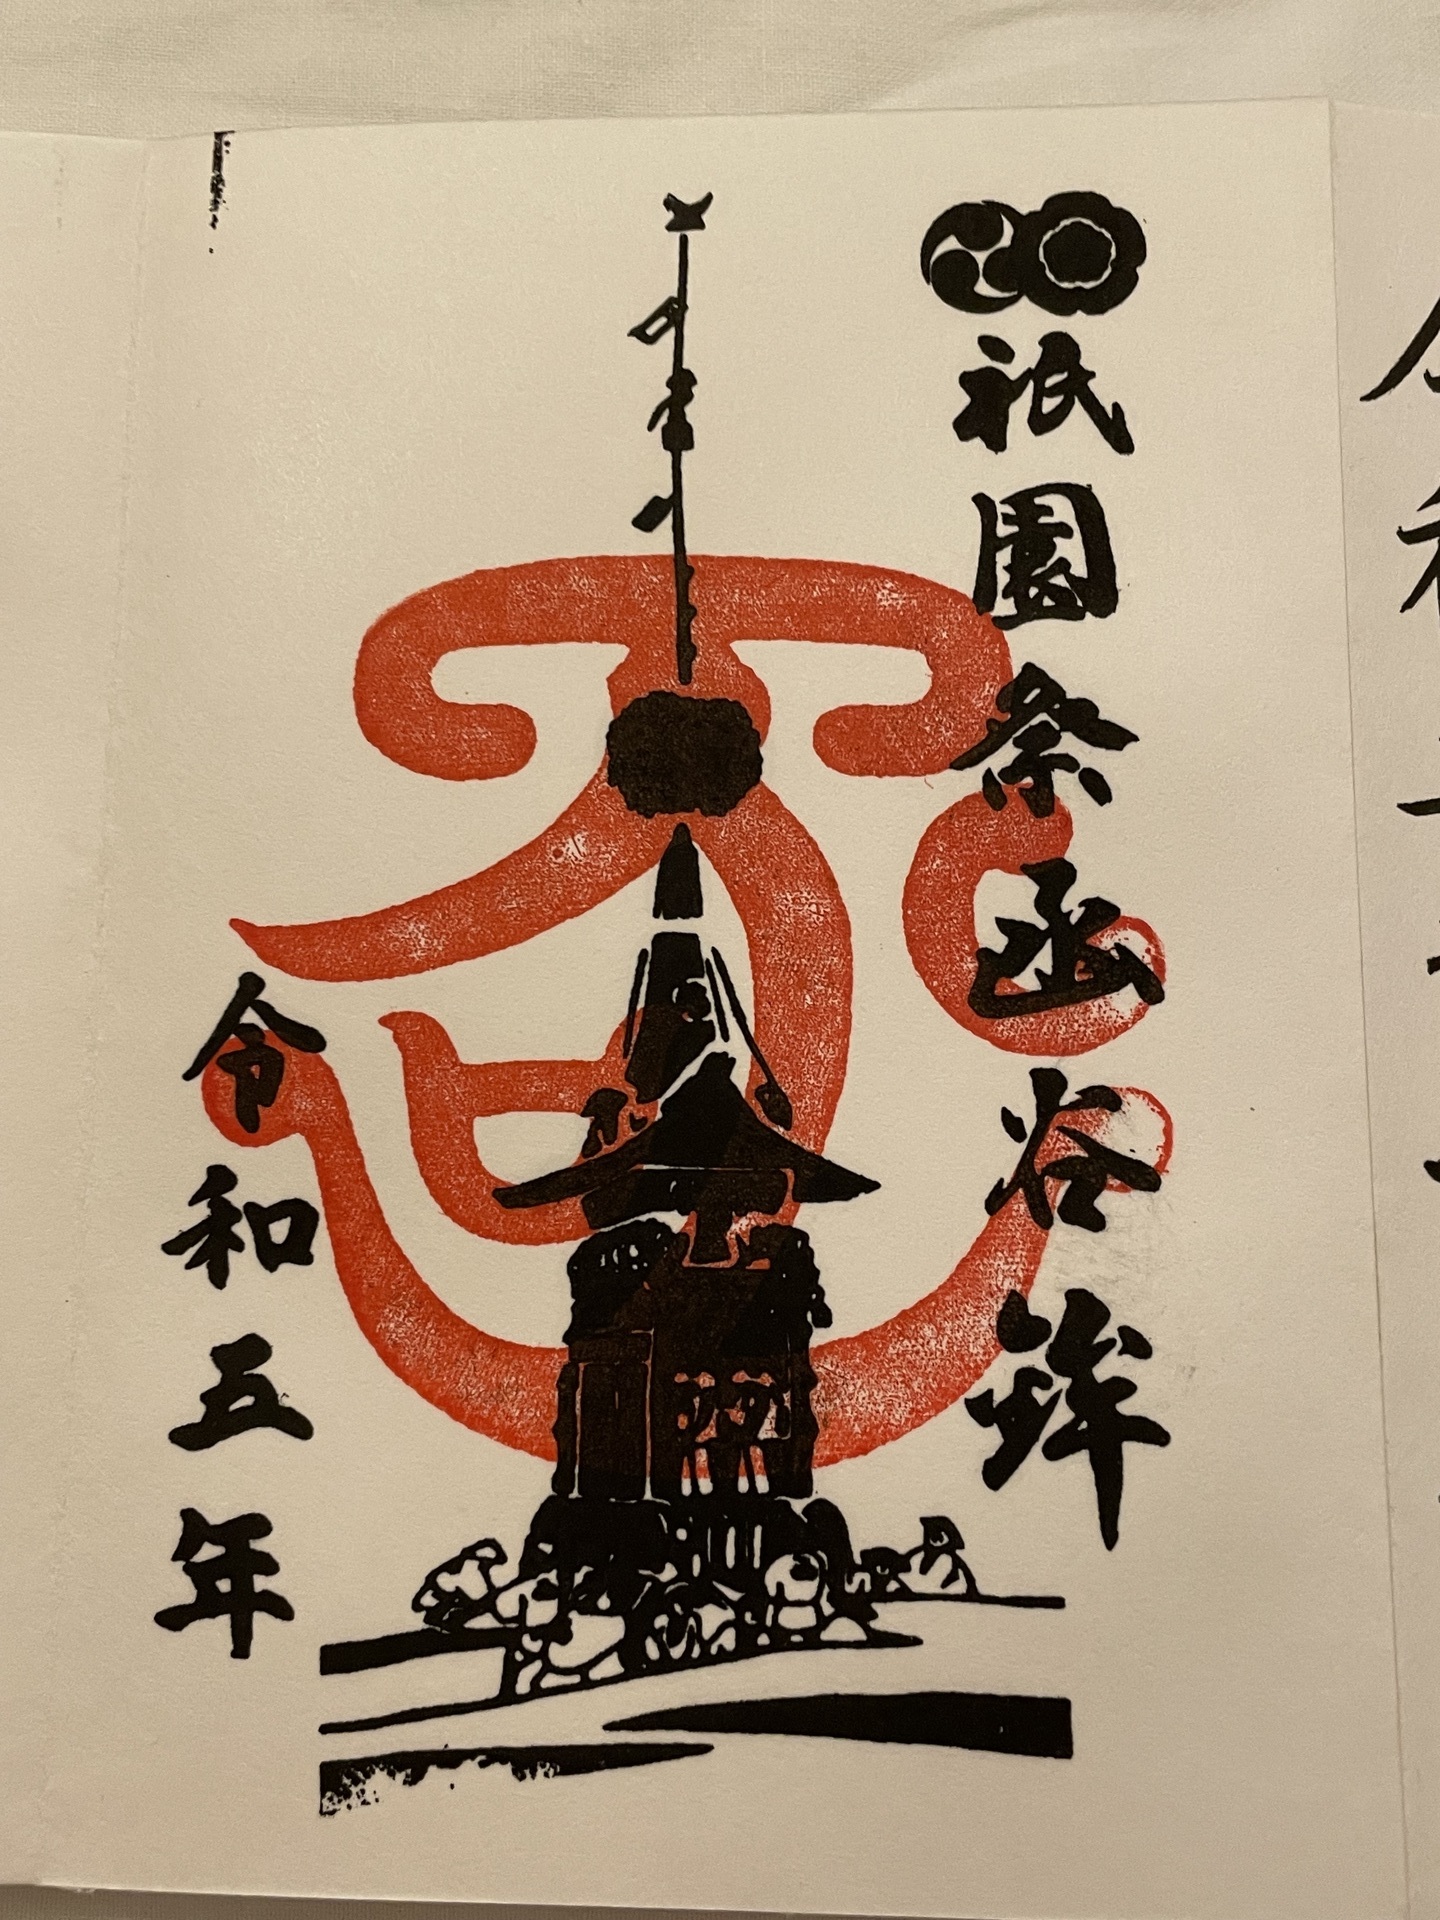 祇園祭函谷鉾
令和五年